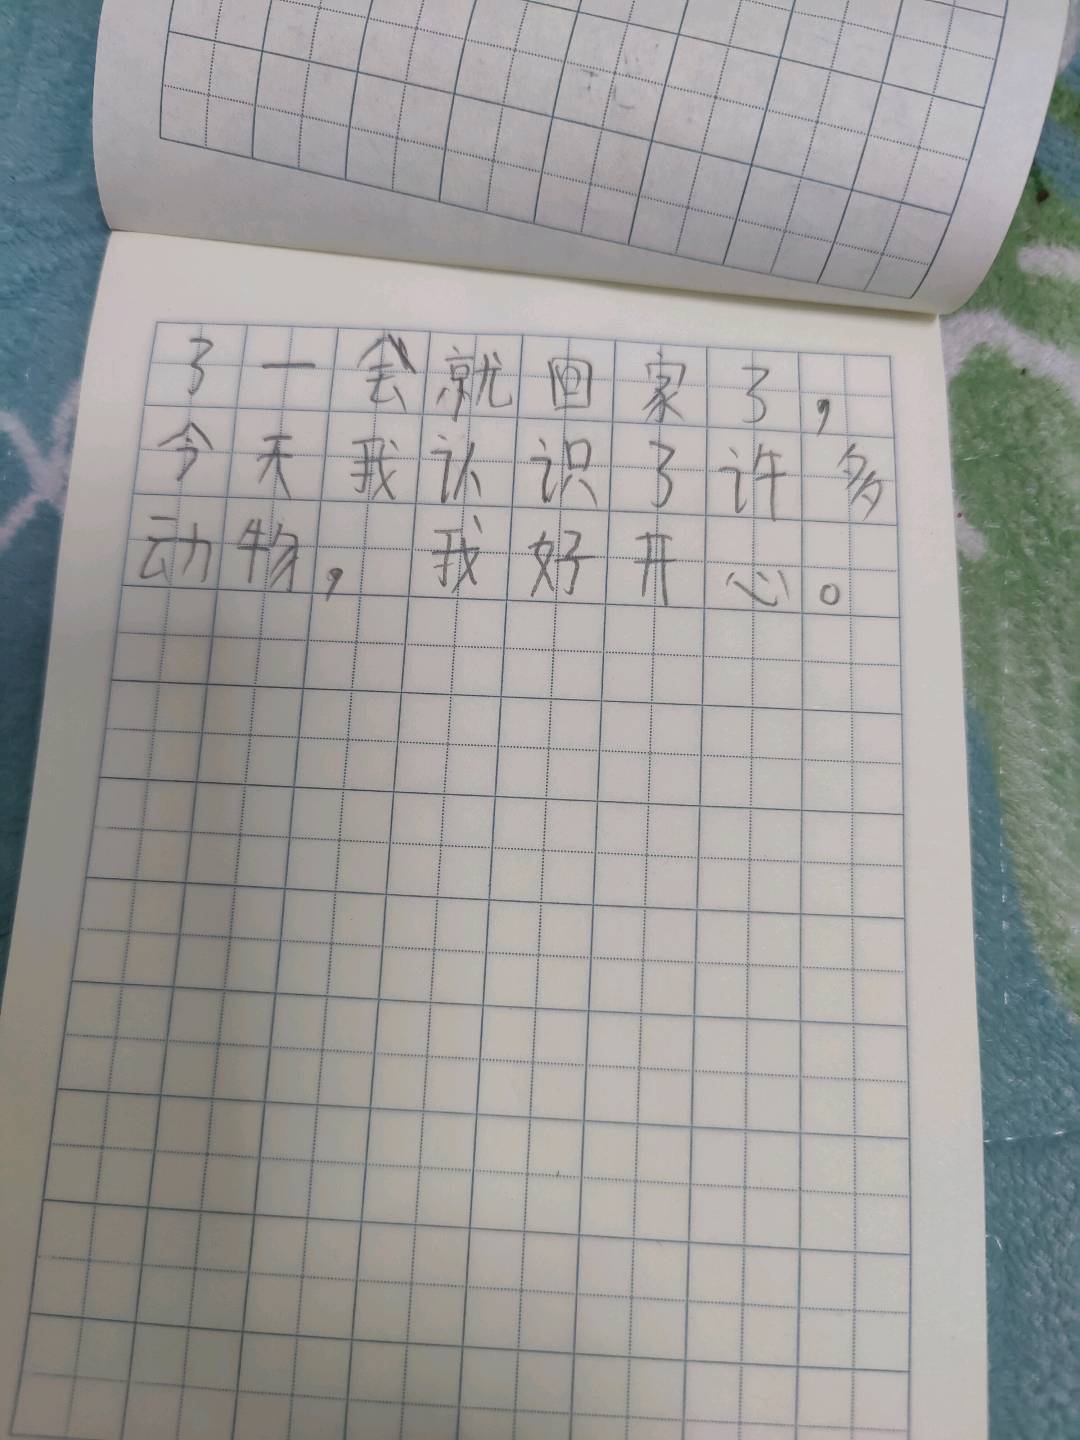 了一会就回家了，
今天我认识了许多
动物，我好开心。